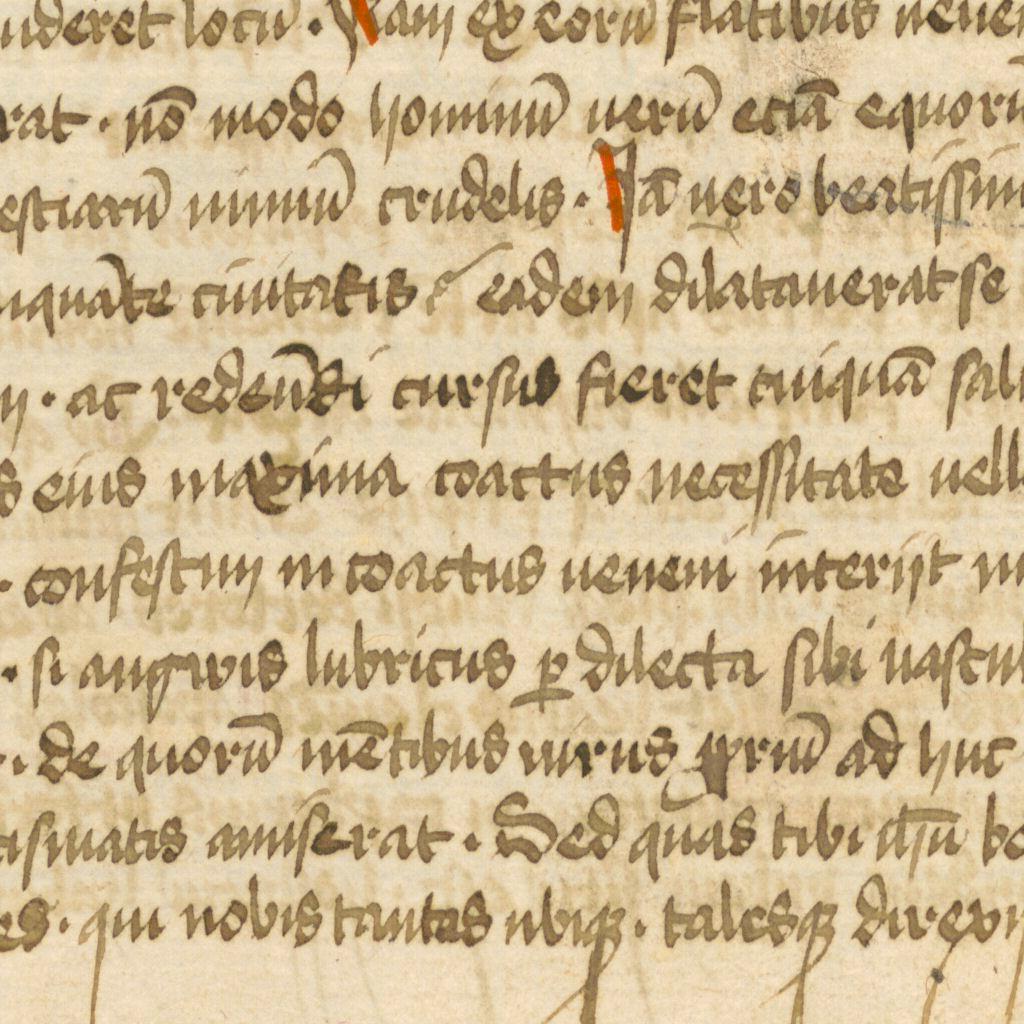 uderet locū · Nam ex eorū flatibus uene
rat · nō modo hominū uerū eciā equorū
estiarū nimiū crudelis · Jā uero beatissim
iquāte ciuitatis eadem dilatauerat se
m · ac redeūdi cursus fieret cuiquā salu
s eius maxima coactus necessitate uell
· confestim in coactus ueneni interijt in
· si anguis lubricus ꝑ dilecta sibi uascul
· de quorū mētibus uirus ad huc
tismatis amiserat · Sed quas tibi be
es · qui nobis tantas ubiqꝫ · talesqꝫ direxi